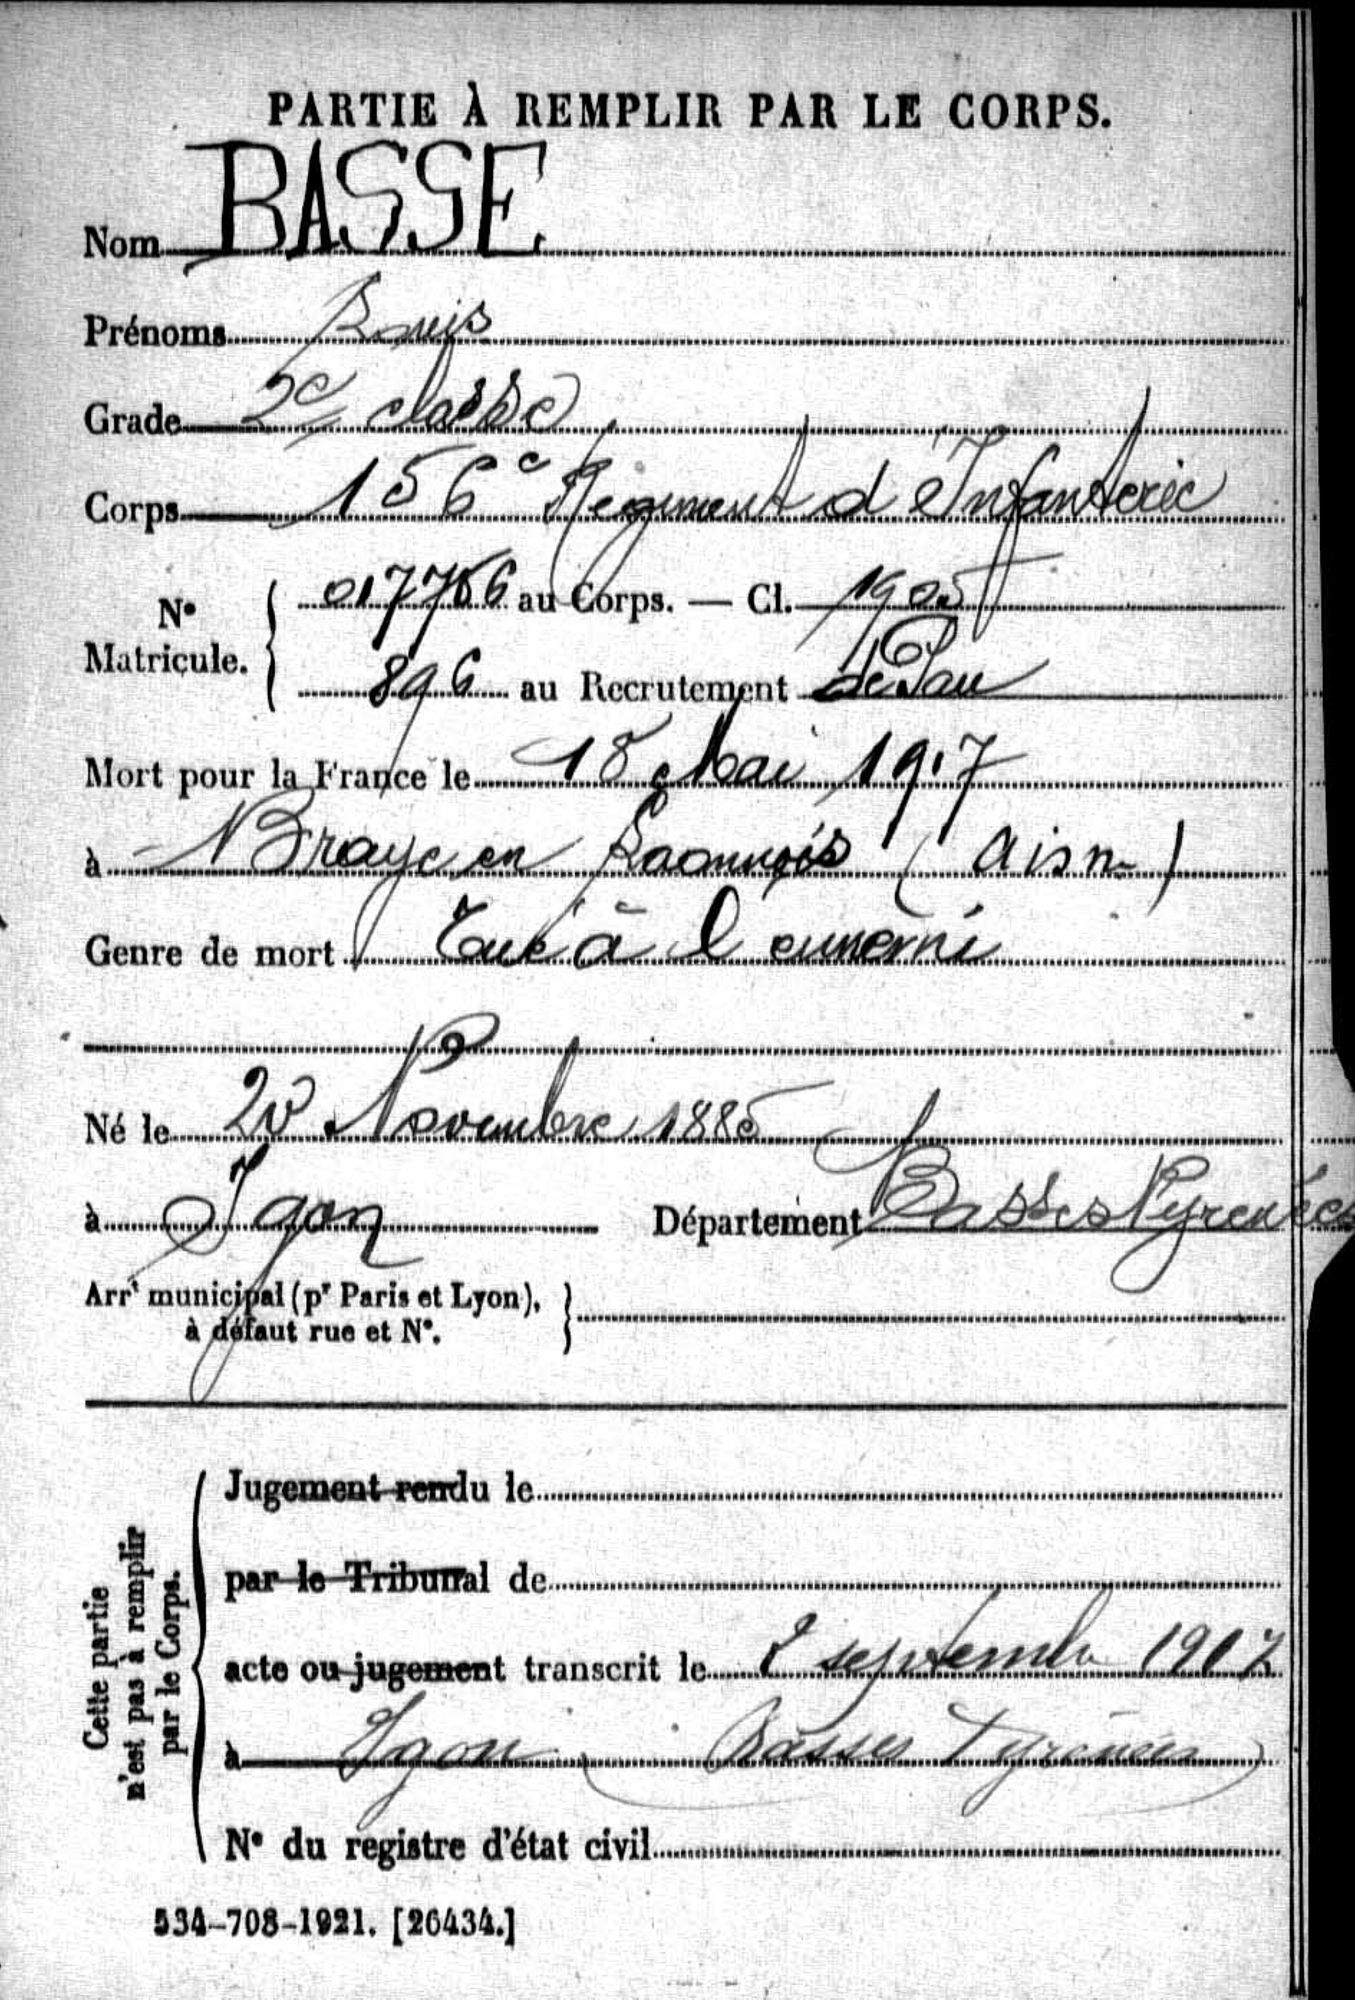 PARTIE À REMPLIR PAR LE CORPS.
Nom BASSE
Prénoms Louis
Grade 2e classe
Corps 156e Régiment d'Infanterie
N° Matricule. { 017756 au Corps. — Cl. 1905
896 au Recrutement de Pau
Mort pour la France le 18 Mai 1917
à Braye en Laonnois (Aisne)
Genre de mort Tué à l'ennemi
Né le 20 Novembre 1885
à Igon Département Basses Pyrénées
Arrt municipal (pr Paris et Lyon),
à défaut rue et N°.
Cette partie
n'est pas à remplir
par le Corps.
Jugement rendu le
par le Tribunal de
acte ou jugement transcrit le 2 septembre 1917
à Igon (Basses Pyrénées)
N° du registre d'état civil
534-708-1921. [26434.]